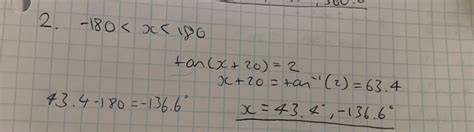 2. -180 < x < 180
tan(x+20) = 2
x+20 = tan⁻¹(2) = 63.4
43.4-180 = -136.6°
x = 43.4°, -136.6°